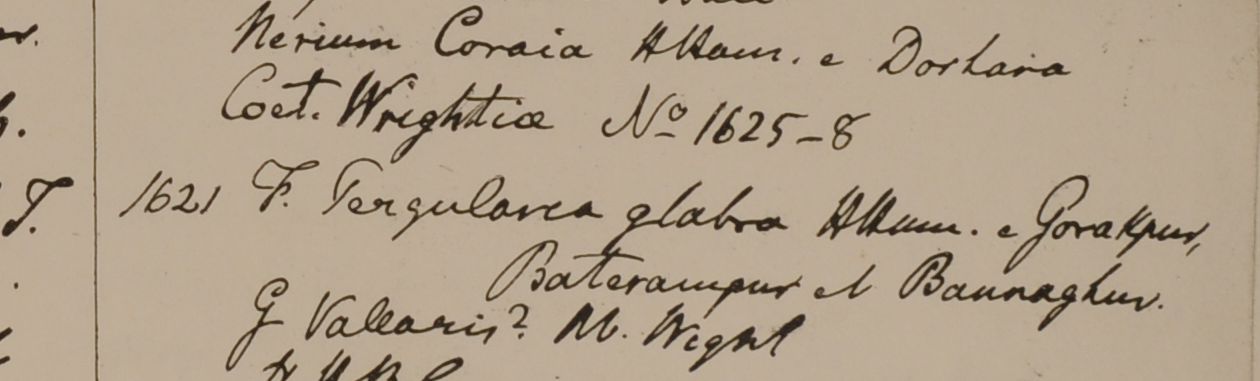 Nerium Coraia HHam. e Dorhara
Coet. Wrightiæ No 1625-8
1621 F. Pergularia glabra HHam. e Gorakpur,
T.
Baterampur et Baunaghur.
G Vallaris? M. Wight